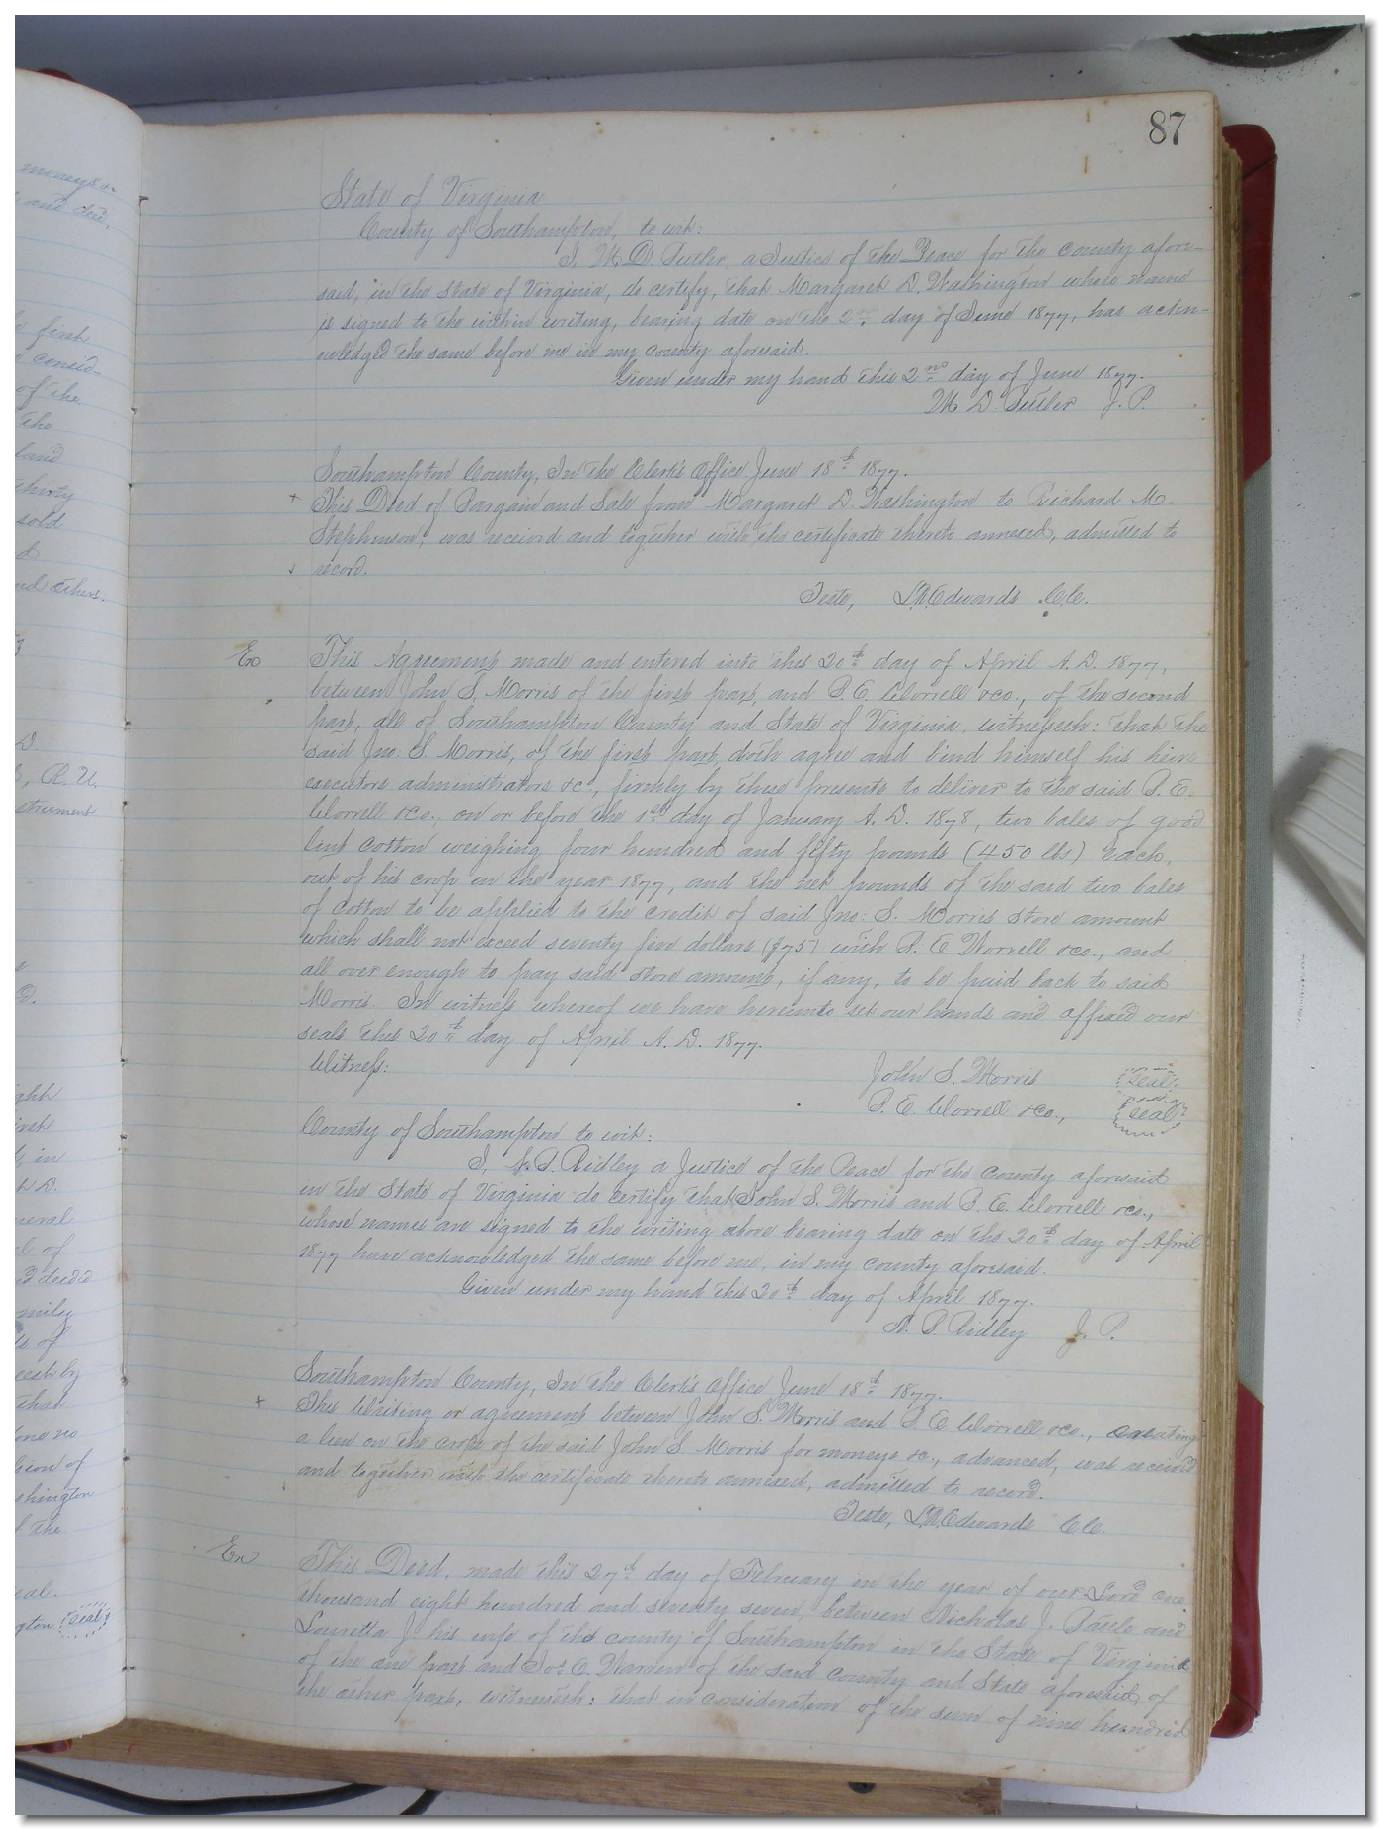 87
State of Virginia
County of Southampton, to wit:
I, M. D. Sutler, a Justice of the Peace for the county afore-
said, in the State of Virginia, do certify, that Margaret D. Washington whose name
is signed to the within writing, bearing date on the 2nd day of June 1877, has ackn-
owledged the same before me in my county aforesaid.
Given under my hand this 2nd day of June 1877.
M. D. Sutler J. P.
Southampton County, In the Clerk's Office June 18th 1877.
This Deed of Bargain and Sale from Margaret D. Washington to Richard M.
Stephenson, was received and together with the certificate thereto annexed, admitted to
record.
Teste, L. R. Edwards C.C.
Ex
This Agreement made and entered into this 20th day of April A.D. 1877,
between John S. Morris of the first part, and P. E. Worrell &co., of the second
part, all of Southampton County and State of Virginia, witnesseth: that the
said Jno. S. Morris, of the first part, doth agree and bind himself his heirs
executors administrators &c., firmly by these presents to deliver to the said P. E.
Worrell &co., on or before the 1st day of January A. D. 1878, two bales of good
lint cotton weighing four hundred and fifty pounds (450 lbs) each,
out of his crop in the year 1877, and the net pounds of the said two bales
of cotton to be applied to the credit of said Jno. S. Morris store amount
which shall not exceed seventy five dollars ($75) with P. E. Worrell &co., and
all over enough to pay said store amount, if any, to be paid back to said
Morris. In witness whereof we have hereunto set our hands and affixed our
seals this 20th day of April A. D. 1877.
Witness: John S. Morris seal
P. E. Worrell &co., seal
County of Southampton to wit:
I, N. P. Ridley a Justice of the Peace for the county aforesaid
in the State of Virginia do certify that John S. Morris and P. E. Worrell &co.,
whose names are signed to the writing above bearing date on the 20th day of April
1877 have acknowledged the same before me, in my county aforesaid.
Given under my hand this 20th day of April 1877.
N. P. Ridley J. P.
Southampton County, In the Clerk's Office June 18th 1877.
This Writing or agreement between John S. Morris and P. E. Worrell &co., creating
a lien on the crops of the said John S. Morris for moneys &c., advanced, was received
and together with the certificate thereto annexed, admitted to record.
Teste, L. R. Edwards C.C.
Ex
This Deed, made this 27th day of February in the year of our Lord one
thousand eight hundred and seventy seven between Nicholas J. and
Louretta J. his wife of the county of Southampton in the State of Virginia
of the one part and Jos. C. Warren of the said county and State aforesaid, of
the other part, witnesseth: that in consideration of the sum of nine hundred